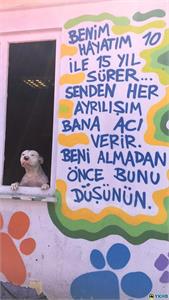 BENİM
HAYATIM 10
İLE 15 YIL
SÜRER...
SENDEN HER
AYRILIŞIM
BANA ACI
VERİR.
BENİ ALMADAN
ÖNCE BUNU
DÜŞÜNÜN.
YKHB